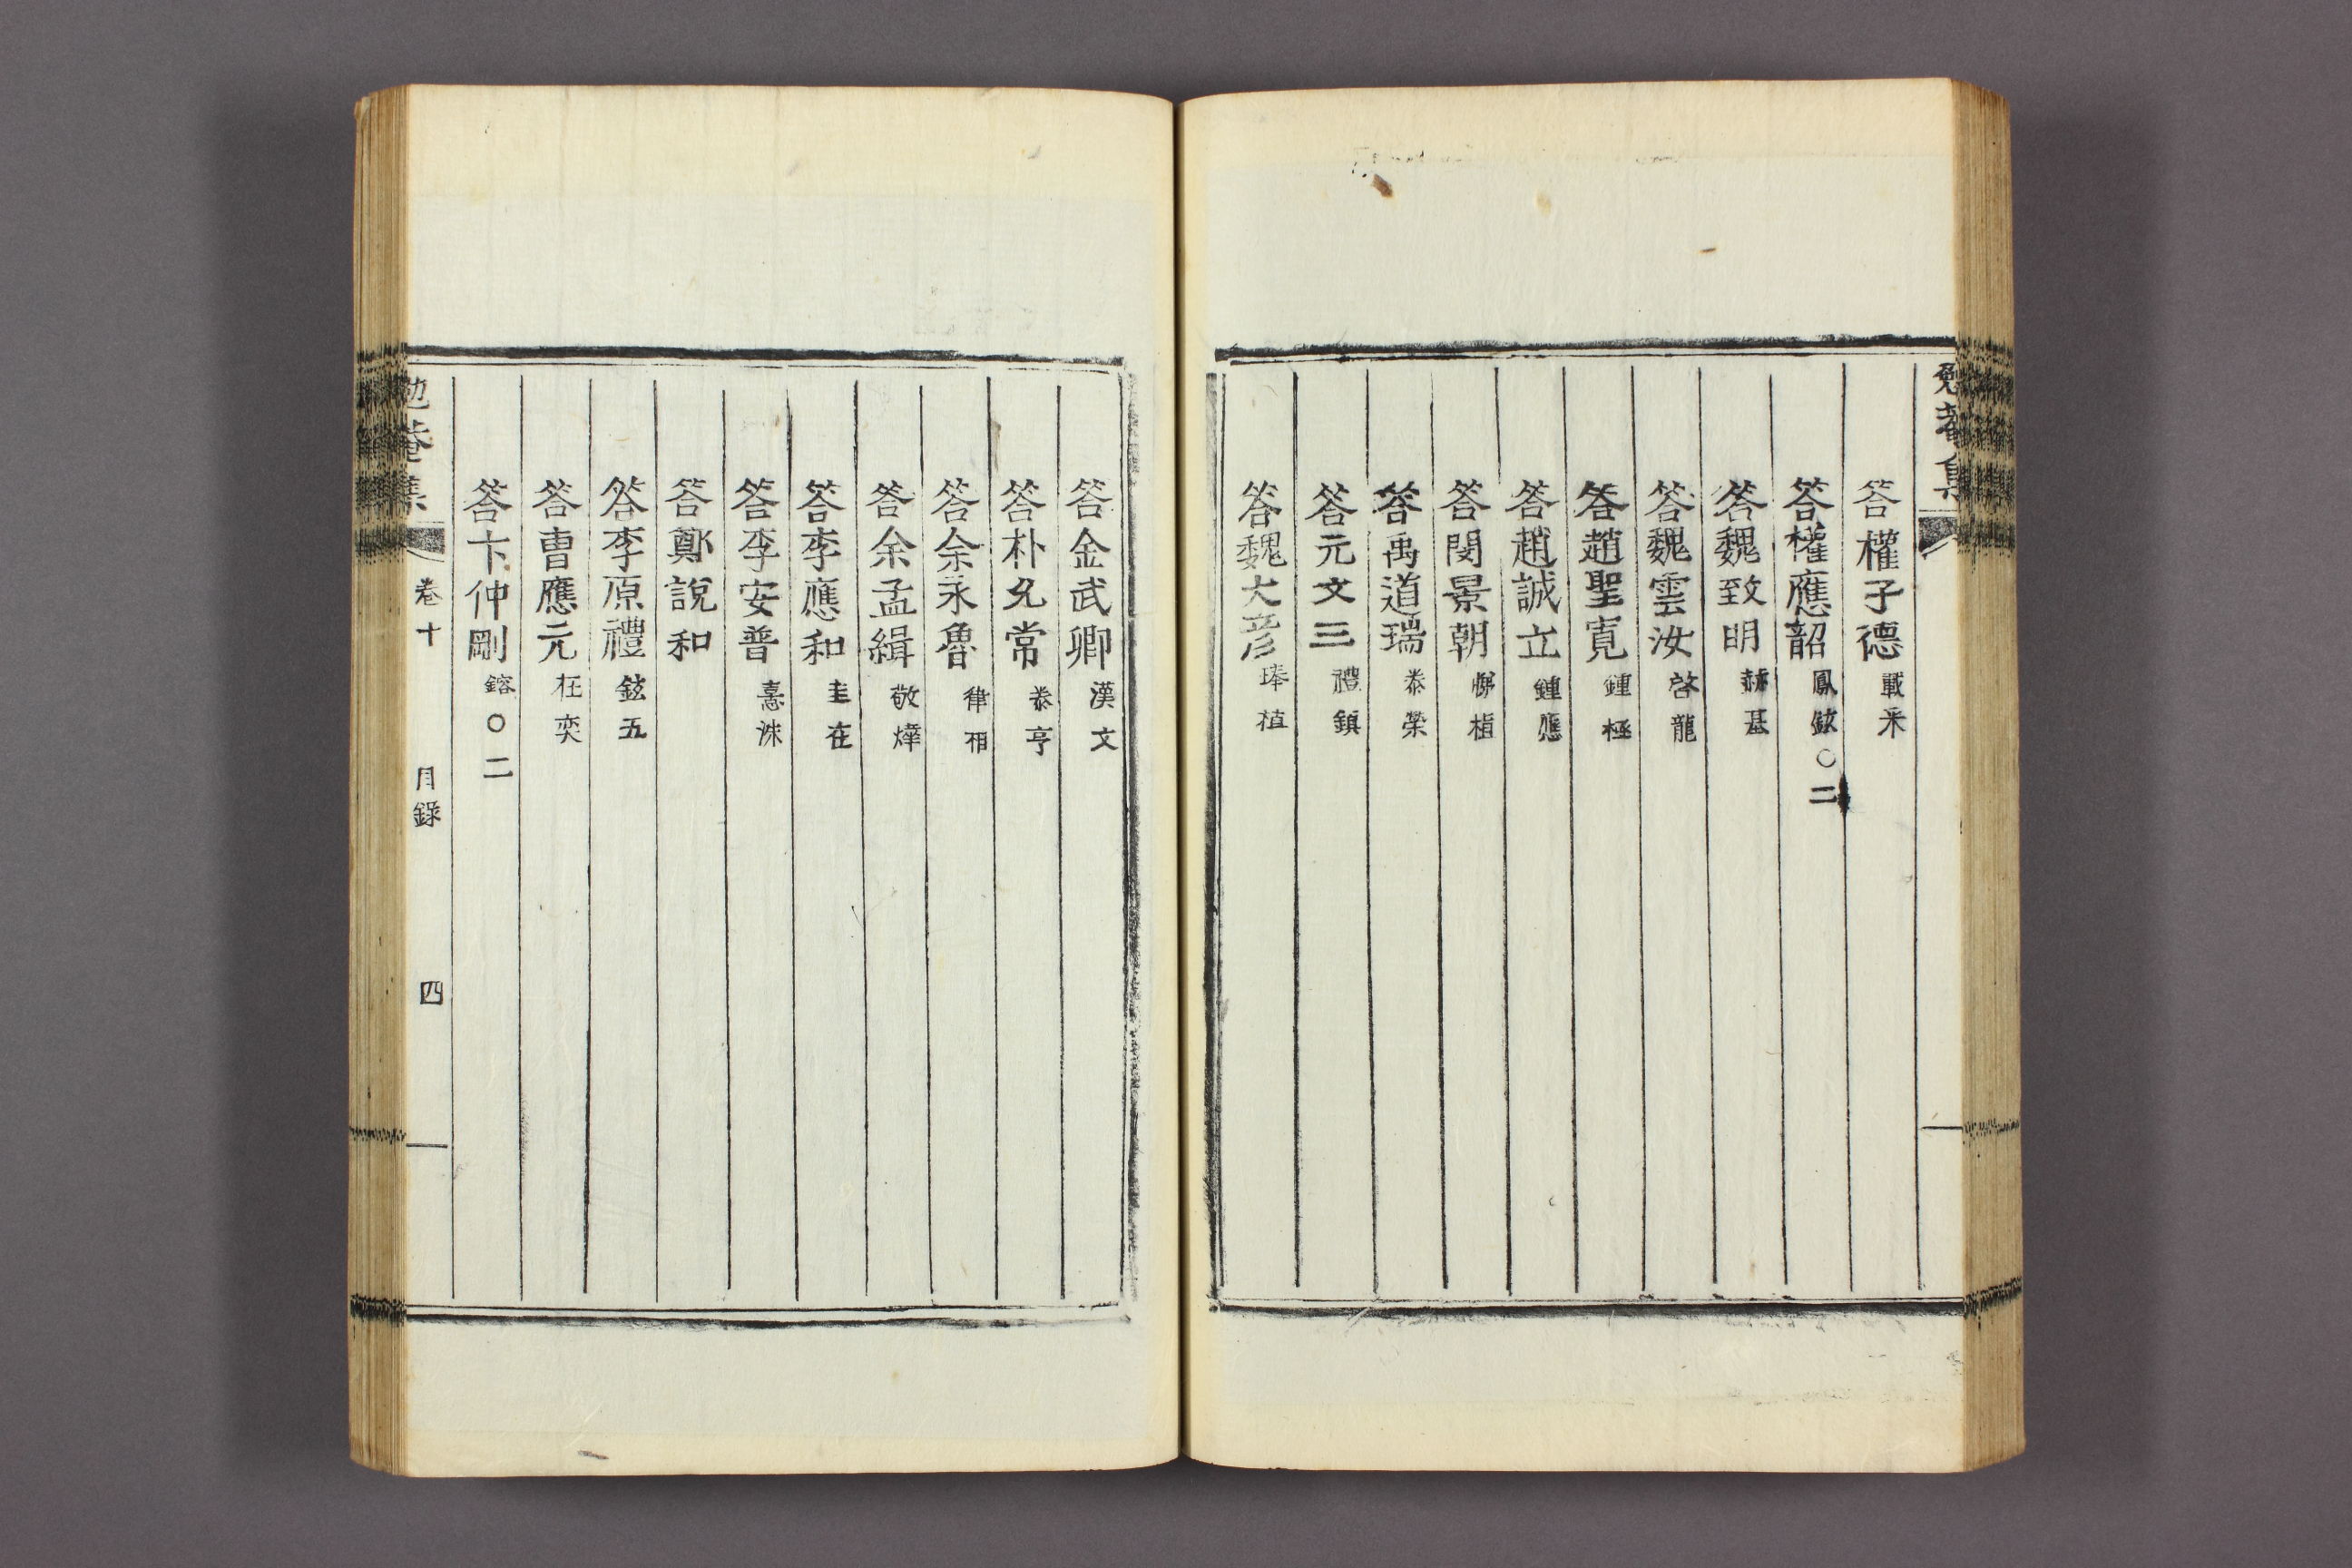 勉菴集
答權子德 載采
答權應韶 鳳鉉〇二
答魏致明 赫基
答魏雲汝 啓龍
答趙聖寬 鍾極
答趙誠立 鍾應
答閔景朝 悌植
答禹道瑞 泰榮
答元文三 禮鎮
答魏大彦 琫植
答金武卿 漢文
答朴允常 泰亨
答余永魯 律相
答余孟緝 敬燁
答李應和 圭在
答李安普 憙洙
答鄭說和
答李原禮 鉉五
答曺應元 在奕
答卞仲剛 鎔〇二
勉菴集 卷十 目錄 四